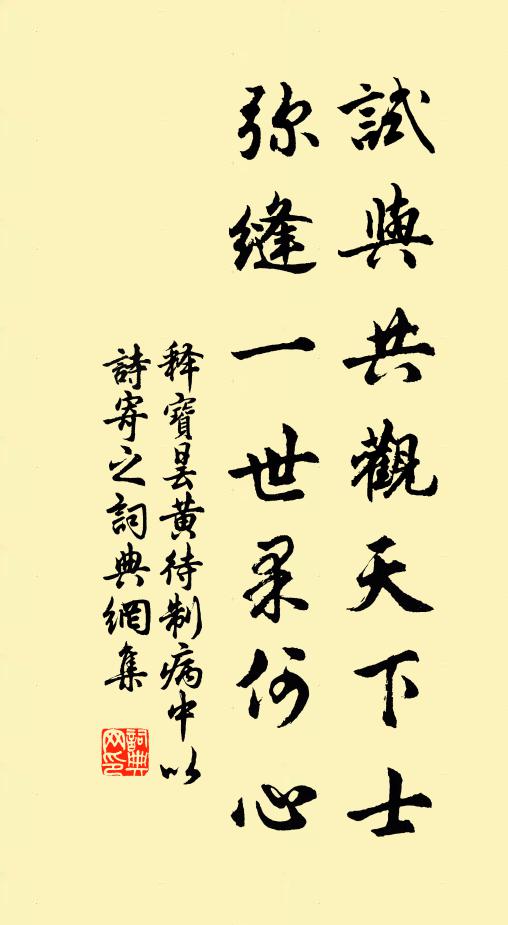 試與共觀天下士
弥縫一世果何心
釋寶曇黄待制病中以
詩寄之詞典網集
詞典網印